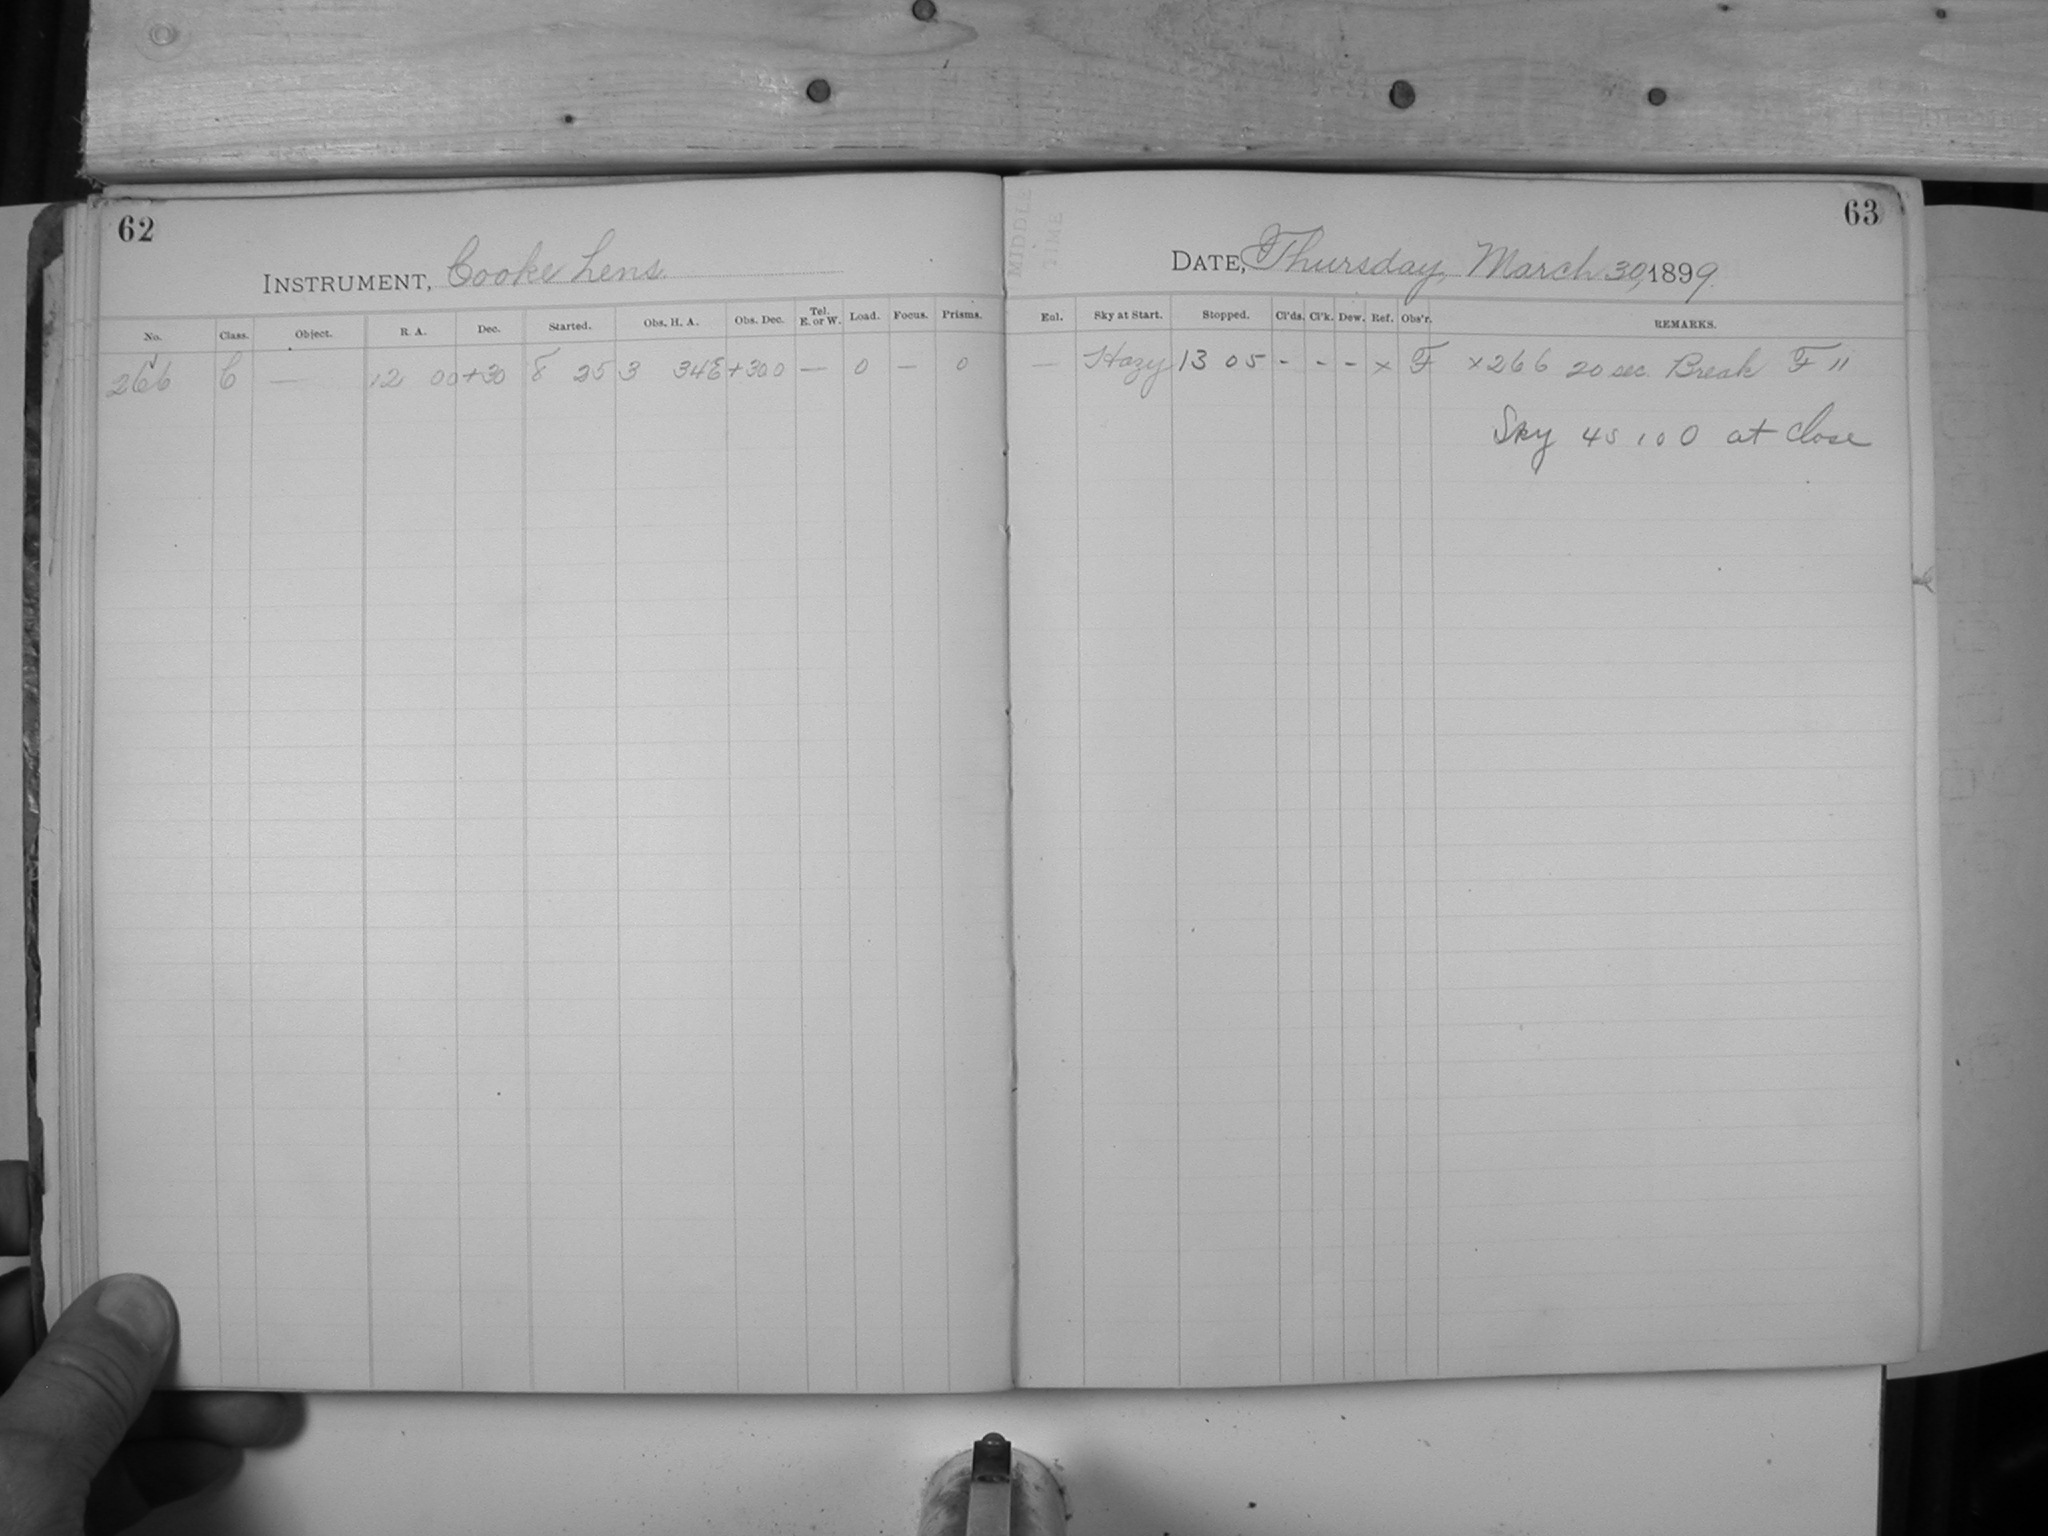 62
INSTRUMENT, Cooke Lens.
No. Class. Object. R. A. Dec. Started. Obs. H. A. Obs. Dec. Tel. E. or W. Load. Focus. Prisms.
266 C — 12 00 +30 8 25 3 34E +30 0 — 0 — 0
MIDDLE
TIME
63
DATE, Thursday, March 30, 1899.
Eal. Sky at Start. Stopped. Cl'ds. Cl'k. Dew. Ref. Obs'r. REMARKS.
— Hazy 13 05 - - - x F x266 20 sec. Break F "
Sky 45 10 0 at close